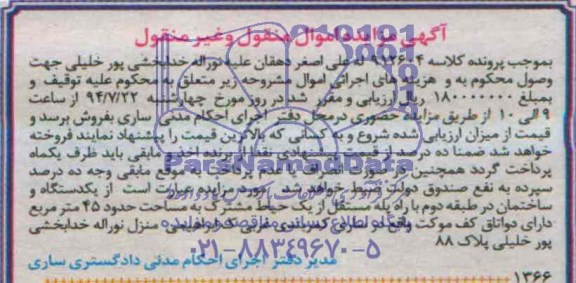 آگهی مزایده اموال منقول وغیر منقول
بموجب پرونده کلاسه ۹۱۳۶۰۴ له علی اصغر دهقان علیه نوراله خدابخشی پور خلیلی جهت
وصول محکوم به و هزینه های اجرائی اموال مشروحه زیر متعلق به محکوم علیه توقیف و
بمبلغ ۱۸۰۰۰۰۰۰۰۰ ریال ارزیابی و مقرر شد در روز مورخ چهارشنبه ۹۴/۷/۲۲ از ساعت
۹ الی ۱۰ از طریق مزایده حضوری درمحل دفتر اجرای احکام مدنی ساری بفروش برسد و
قیمت از میزان ارزیابی شده شروع و به کسانی که بالاترین قیمت را پیشنهاد نمایند فروخته
خواهد شد ضمنا ده درصد از قیمت پیشنهادی نقدا از برنده اخذ و مابقی باید ظرف یکماه
پرداخت گردد همچنین در صورت انصراف یا عدم پرداخت به موقع مابقی وجه ده درصد
سپرده به نفع صندوق دولت ضبط خواهد شد مورد مزایده عبارت است از یکدستگاه
ساختمان در طبقه دوم با راه پله مستقل از یک حیاط مشترک به مساحت حدود ۴۵ متر مربع
دارای دواتاق کف موکت واقع در ساری کمربندی غربی منزل نوراله خدابخشی
پور خلیلی پلاک ۸۸
مدیر دفتر اجرای احکام مدنی دادگستری ساری
۱۳۶۶
ParsNamadData
پایگاه اطلاع رسانی مناقصه و مزایده
۰۲۱-۸۸۳۴۹۶۷۰-۵